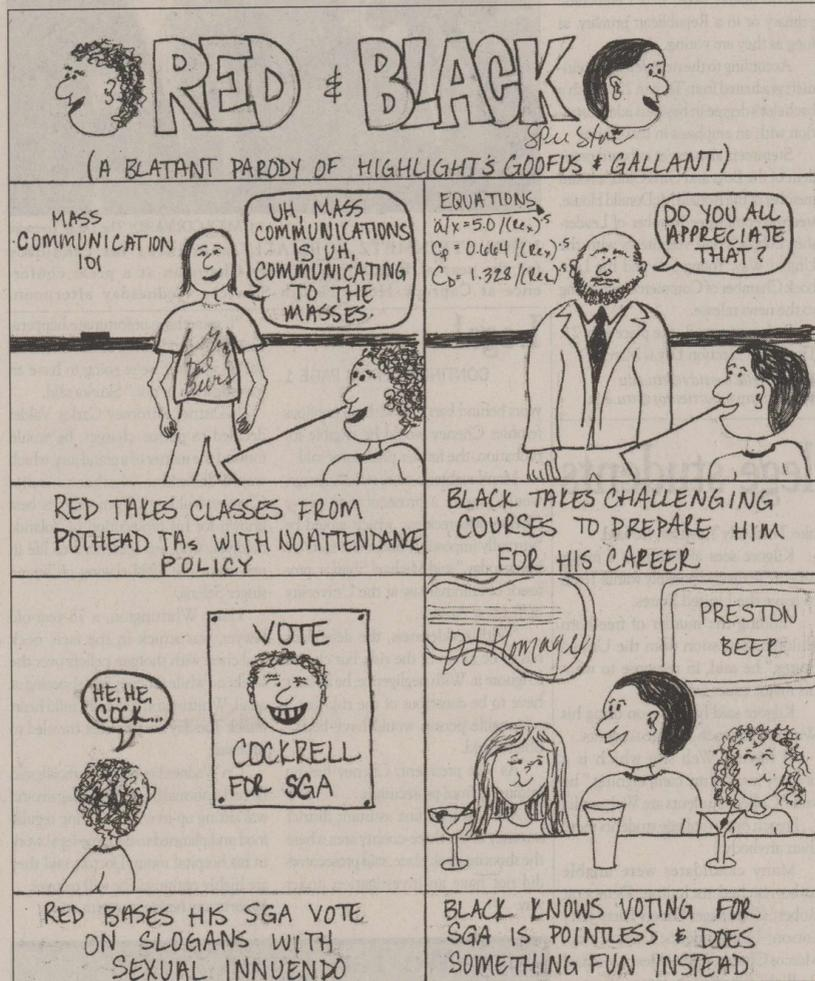 RED & BLACK
(A BLATANT PARODY OF HIGHLIGHT'S GOOFUS & GALLANT)
MASS
COMMUNICATION
101
UH, MASS
COMMUNICATIONS
IS UH,
COMMUNICATING
TO THE
MASSES.
RED TAKES CLASSES FROM
POTHEAD TAs WITH NO ATTENDANCE
POLICY
EQUATIONS
a/x=5.0/(Rex)·5
Cp=0.664/(Rex)·5
CD=1.328/(Rec)·5
DO YOU ALL
APPRECIATE
THAT?
BLACK TAKES CHALLENGING
COURSES TO PREPARE HIM
FOR HIS CAREER
HE, HE,
COCK...
VOTE
COCKRELL
FOR SGA
RED BASES HIS SGA VOTE
ON SLOGANS WITH
SEXUAL INNUENDO
DJ Homage
PRESTON
BEER
BLACK KNOWS VOTING FOR
SGA IS POINTLESS & DOES
SOMETHING FUN INSTEAD